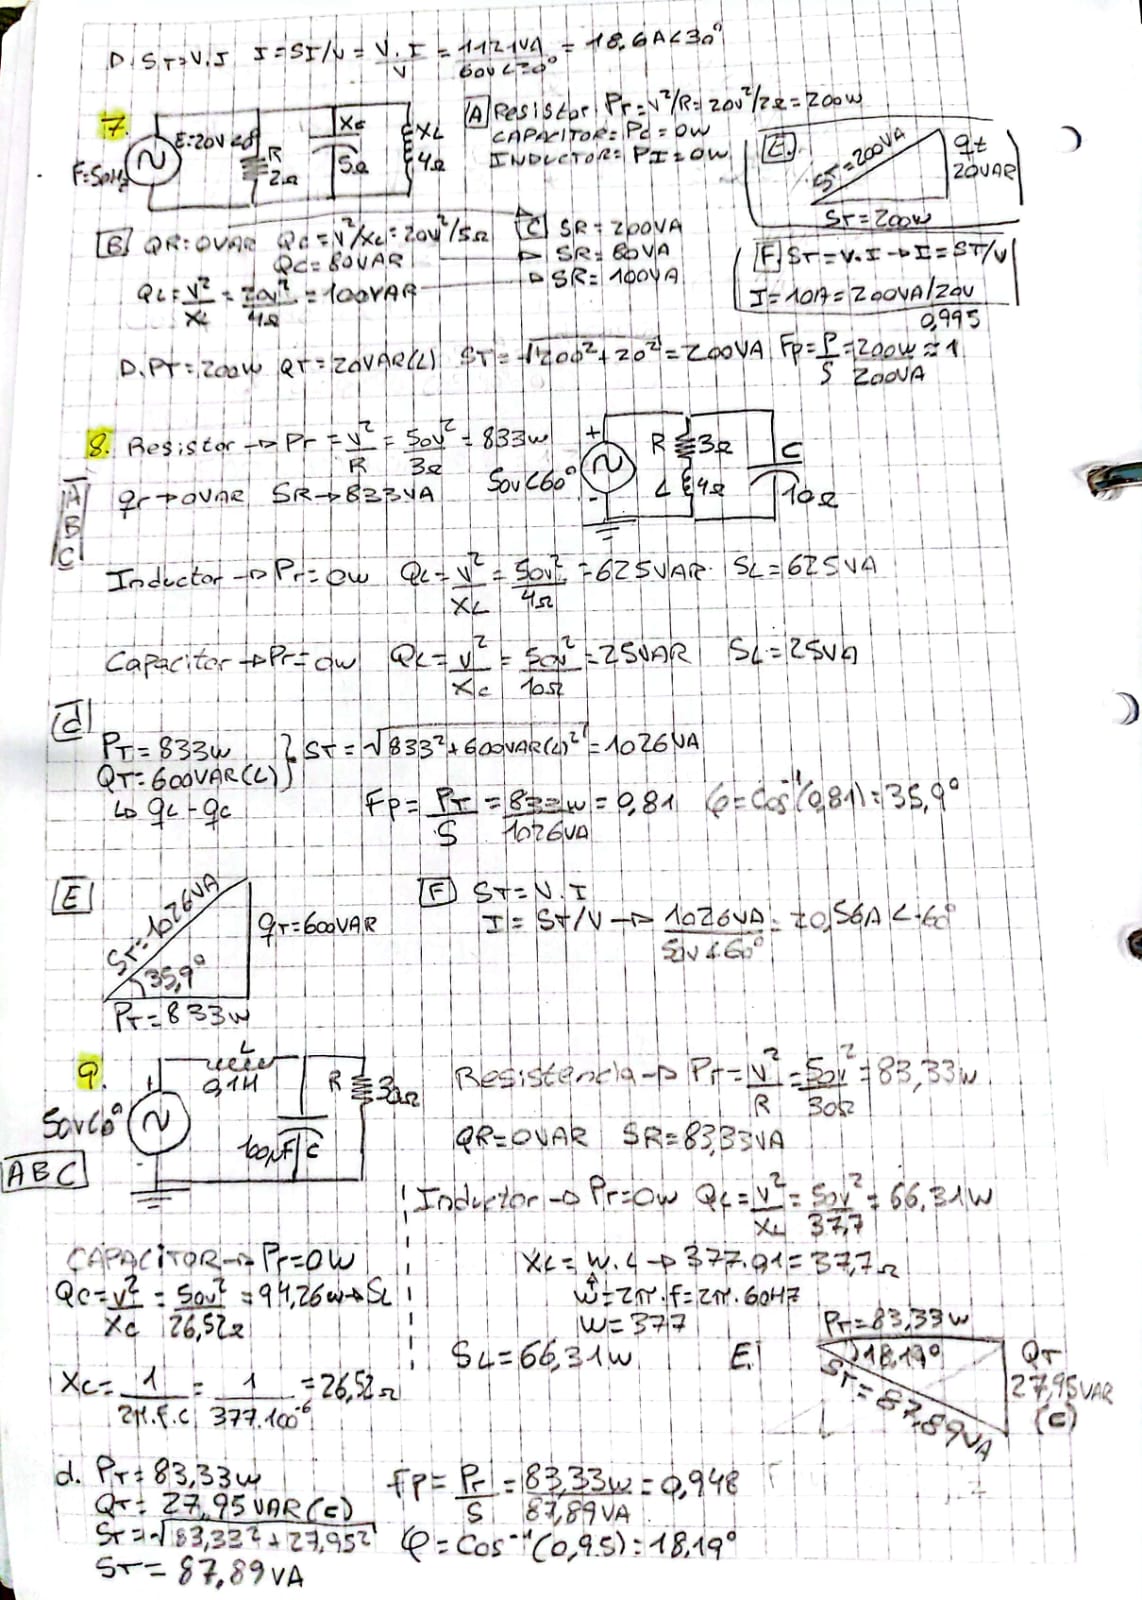 D. ST=V.I I=SI/V = V.I/V = 1121VA/60V<30° = 18.6A<30°
7.
E=20V<0°
F=50Hz
R 2Ω
Xc 5Ω
XL 4Ω
A Resistor Pr=V²/R=20V²/2Ω=200W
CAPACITOR= Pc=0W
INDUCTOR= PI=0W
E.
ST=200VA
qt 20VAR
ST=200W
B QR=0VAR Qc=V²/Xc=20V²/5Ω
Qc=80VAR
QL=V²/XL = 20V²/4Ω = 100VAR
C SR=200VA
SR=80VA
SR=100VA
F ST=V.I→I=ST/V
I=10A=200VA/20V
0,995
D. PT=200W QT=20VAR(L) ST=√200²+20² = 200VA Fp=P/S=200W/200VA≈1
8. Resistor→Pr=V²/R=50V²/3Ω=833W
A B C
qr→0VAR SR→833VA
50V<60°
+
-
R 3Ω
L 4Ω
C 10Ω
Inductor→Pr=0W QL=V²/XL=50V²/4Ω=625VAR SL=625VA
Capacitor→Pr=0W QL=V²/Xc=50V²/10Ω=25VAR SL=25VA
d
PT=833W
QT=600VAR(L) } ST=√833²+600VAR(L)²=1026VA
↳ qL-qc
Fp=PT/S=833W/1026VA=0,81 φ=Cos⁻¹(0,81)=35,9°
E
ST=1026VA
qT=600VAR
35,9°
PT=833W
F ST=V.I
I=ST/V→1026VA/50V<60°=20,56A<-60°
9.
L 0,1H
50V<0°
100μF C
R 30Ω
ABC
Resistencia→Pr=V²/R=50V²/30Ω=83,33W
QR=0VAR SR=83,33VA
Inductor→Pr=0W QL=V²/XL=50V²/37,7=66,31W
XL=W.L→377.0,1=37,7Ω
W=2π.f=2π.60Hz
W=377
SL=66,31W
CAPACITOR→Pr=0W
Qc=V²/Xc=50V²/26,52Ω=94,26W→SL
Xc=1/2π.f.C=1/377.100⁻⁶=26,52Ω
E.
PT=83,33W
18,19°
ST=87,89VA
QT
27,95VAR
(C)
d. PT=83,33W
QT=27,95VAR(C)
ST=√83,33²+27,95²
ST=87,89VA
Fp=Pr/S=83,33W/87,89VA=0,948
φ=Cos⁻¹(0,95)=18,19°